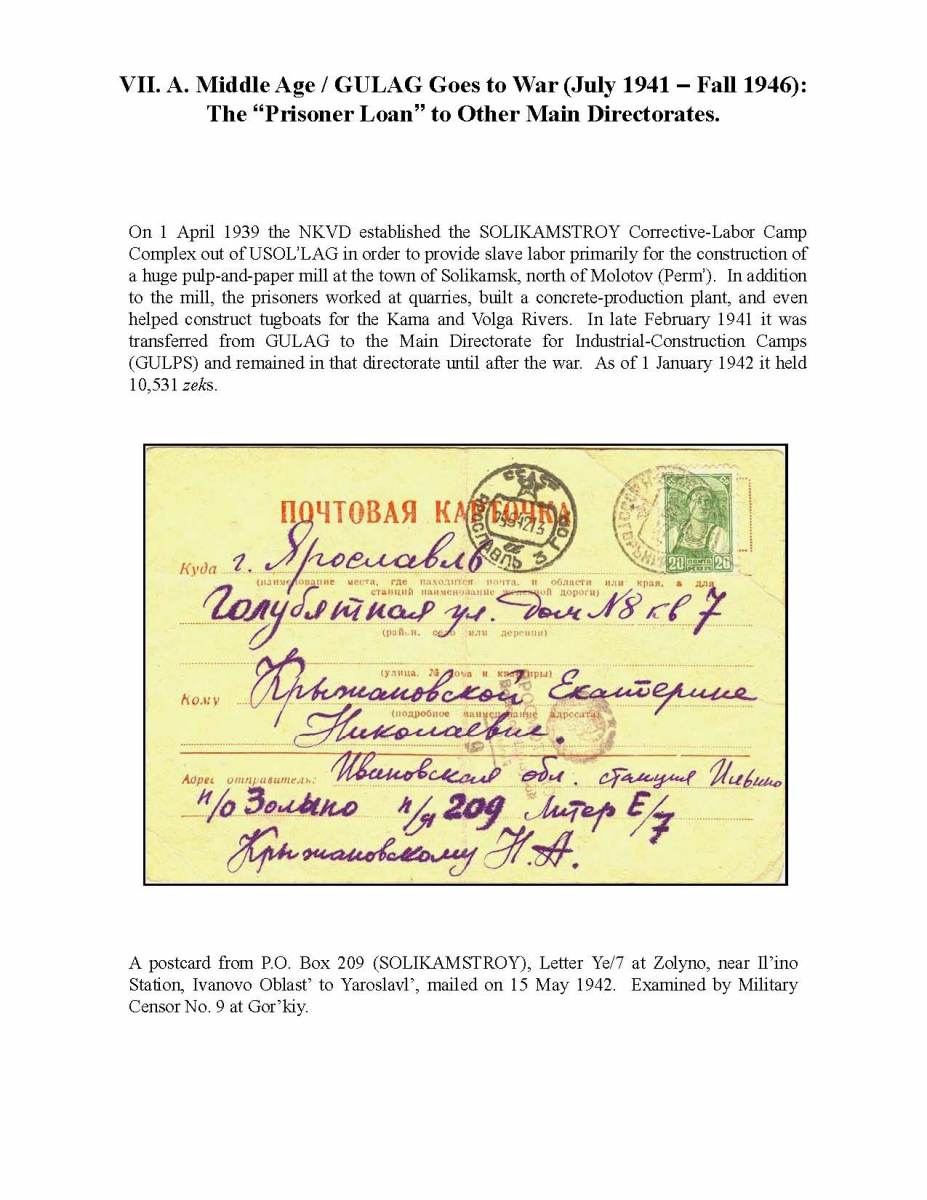 VII. A. Middle Age / GULAG Goes to War (July 1941 – Fall 1946):
The “Prisoner Loan” to Other Main Directorates.
On 1 April 1939 the NKVD established the SOLIKAMSTROY Corrective-Labor Camp
Complex out of USOL’LAG in order to provide slave labor primarily for the construction of
a huge pulp-and-paper mill at the town of Solikamsk, north of Molotov (Perm’). In addition
to the mill, the prisoners worked at quarries, built a concrete-production plant, and even
helped construct tugboats for the Kama and Volga Rivers. In late February 1941 it was
transferred from GULAG to the Main Directorate for Industrial-Construction Camps
(GULPS) and remained in that directorate until after the war. As of 1 January 1942 it held
10,531 zeks.
СССР
ЯРОСЛАВЛЬ 3 ГОР
ПОЧТОВАЯ КАРТОЧКА
20 ПОЧТА СССР 20
Куда г. Ярославль
(наименование места, где находится почта, и области или края, а для
станций наименование железной дороги)
Голубятная ул. дом N8 кв 7
(район, село или деревня)
(улица, № дома и квартиры)
Кому Крыжановской Екатерине
(подробное наименование адресата)
Николаевне.
Адрес отправитель: Ивановская обл. станция Ильино
п/о Золыно п/я 209 Литер Е/7
Крыжановскому Н. А.
A postcard from P.O. Box 209 (SOLIKAMSTROY), Letter Ye/7 at Zolyno, near Il’ino
Station, Ivanovo Oblast’ to Yaroslavl’, mailed on 15 May 1942. Examined by Military
Censor No. 9 at Gor’kiy.